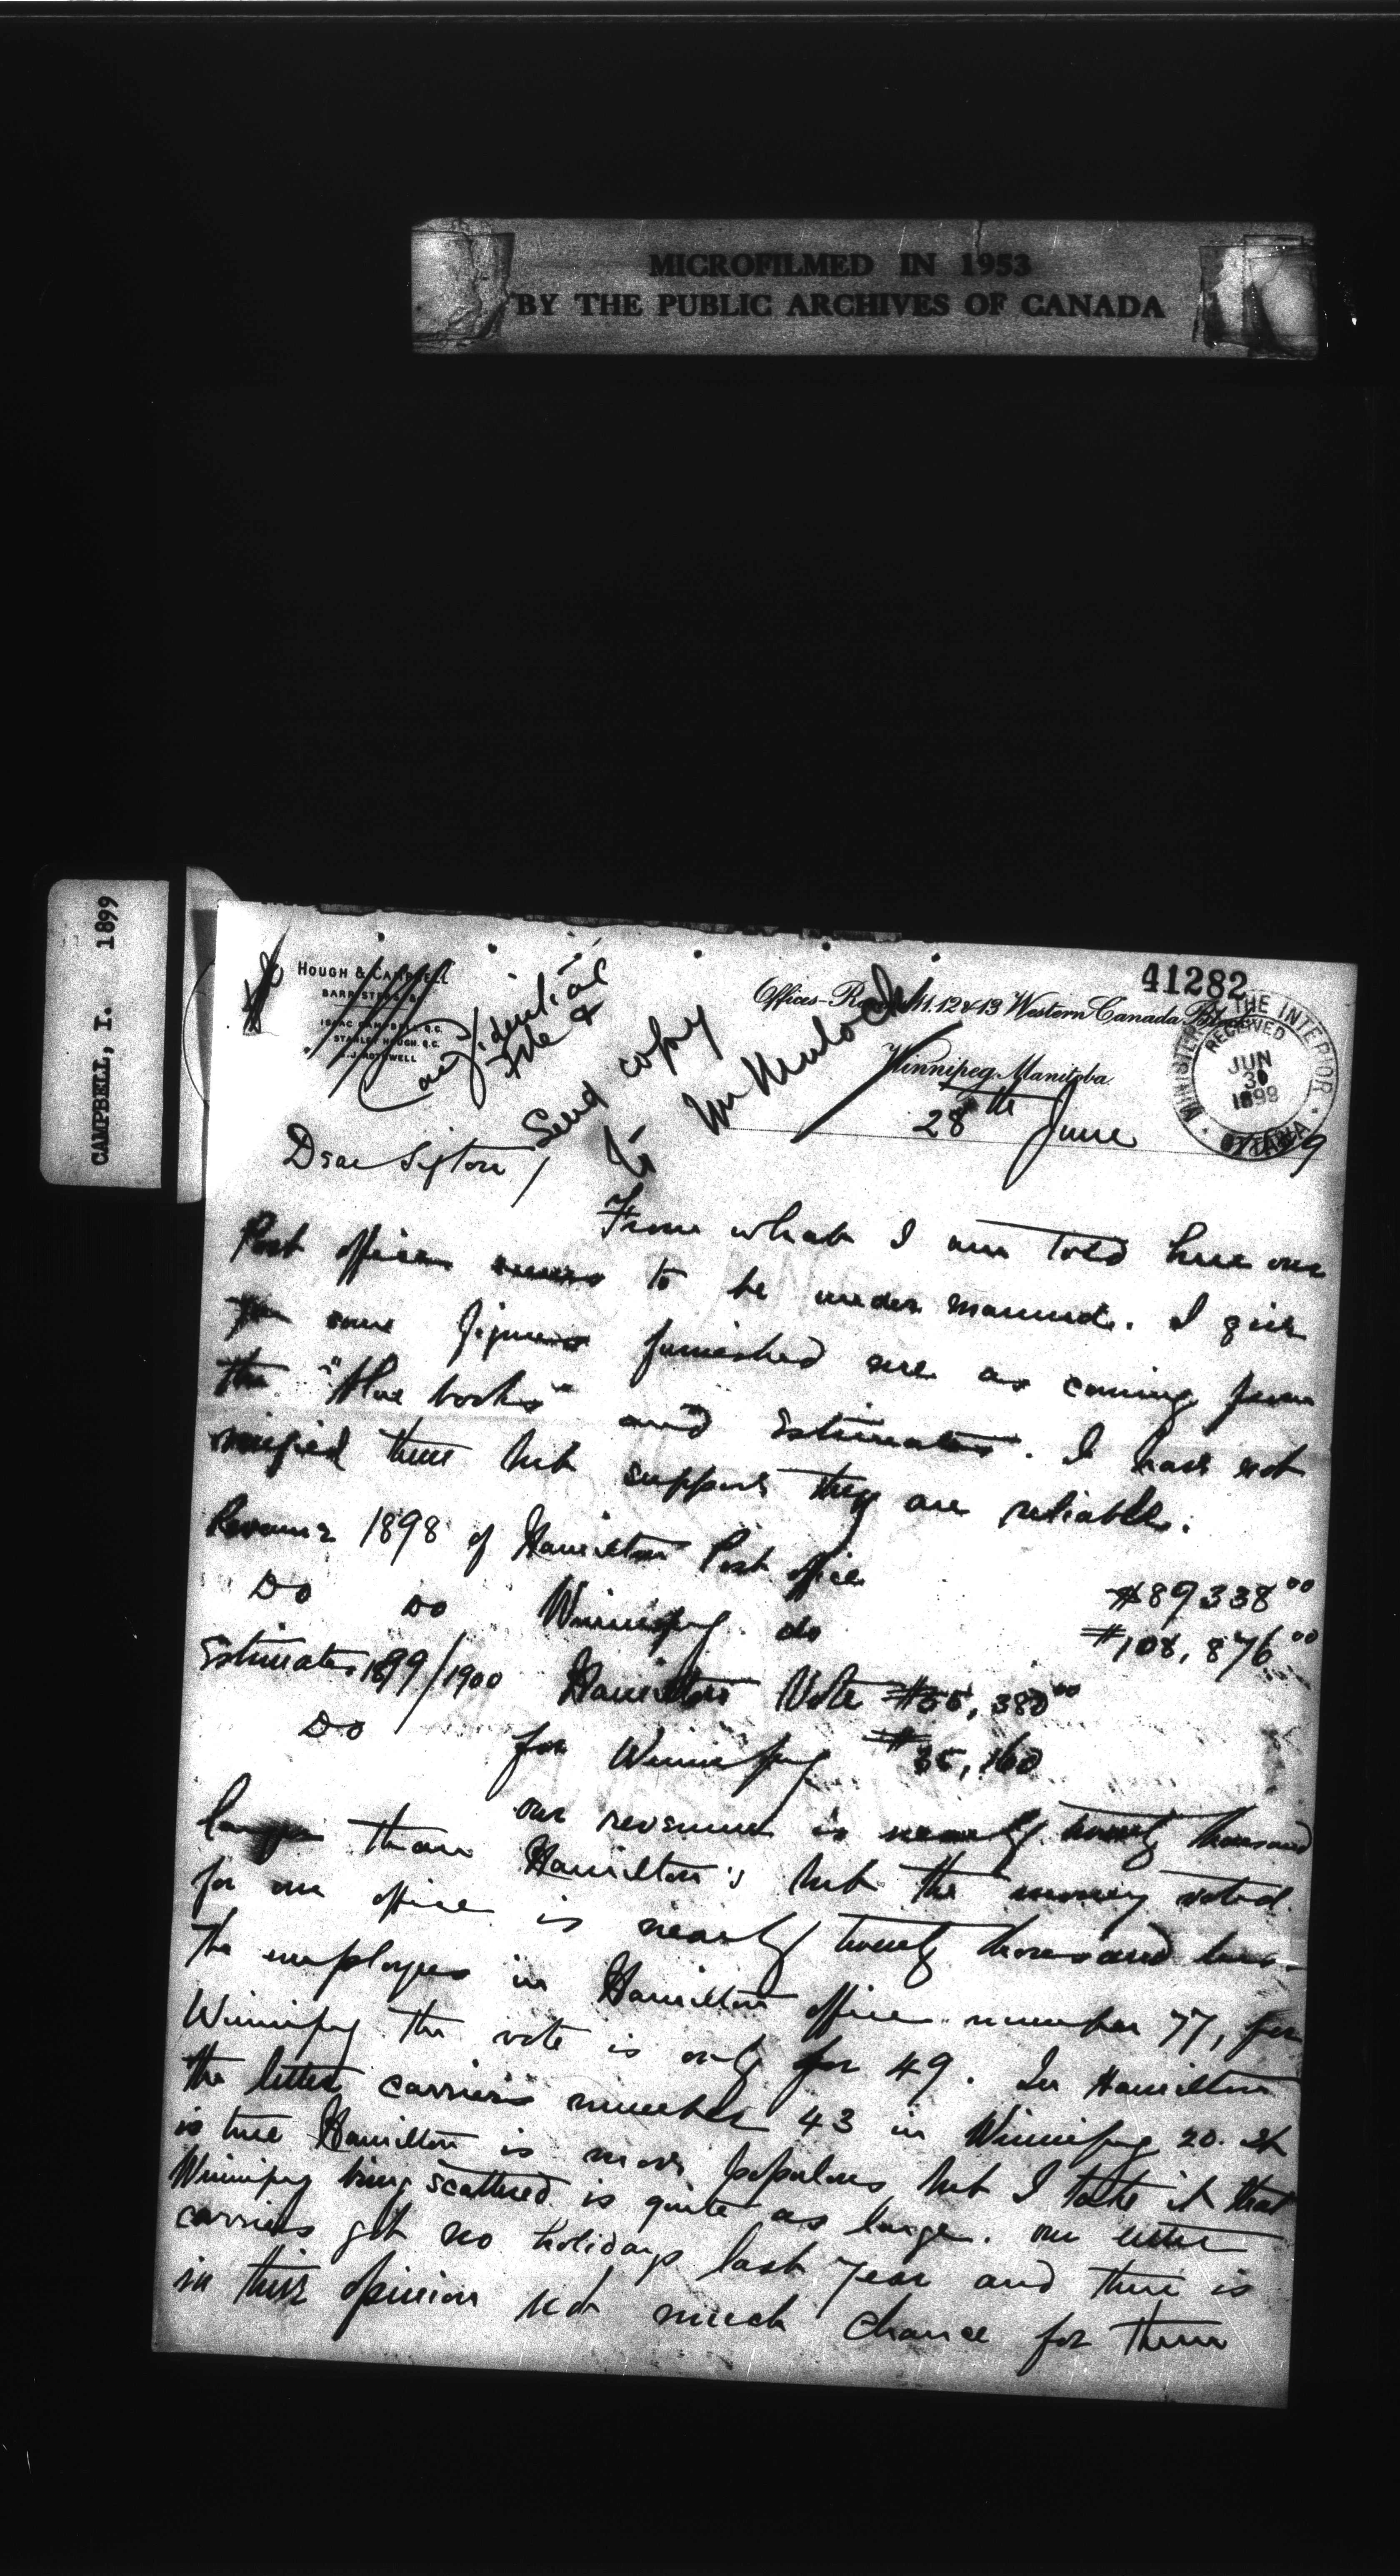 MICROFILMED IN 1953
BY THE PUBLIC ARCHIVES OF CANADA
CAMPBELL, I. 1899
41282
HOUGH & CAMPBELL
BARRISTERS &
ISAAC CAMPBELL, Q.C.
STANLEY HOUGH, Q.C.
A.J. ROTHWELL
Offices - Rooms 11, 12 & 13 Western Canada
Winnipeg, Manitoba
28th June 9
MINISTER THE INTERIOR
RECEIVED
JUN
30
1899
OTTAWA
Confidential
File &
Send copy
to Mr Mulock
Dear Sifton,
From what I am told here our
Post office seems to be under manned. I give
you some figures furnished me as coming from
the "blue books" and Estimates. I have not
verified them but suppose they are reliable.
Revenue 1898 of Hamilton Post office $89338 00
Do Do Winnipeg do $108,876 00
Estimates 1899/1900 Hamilton Vote $55,380 00
Do for Winnipeg $35,160
our revenue is nearly twenty thousand
larger than Hamilton's but the money voted
for our office is nearly twenty thousand less.
The employees in Hamilton office number 77, for
Winnipeg the vote is only for 49. In Hamilton
the letter carriers number 43 in Winnipeg 20. It
is true Hamilton is more populous but I take it that
Winnipeg being scattered is quite as large. Our letter
carriers got no holidays last year and there is
in their opinion not much chance for them